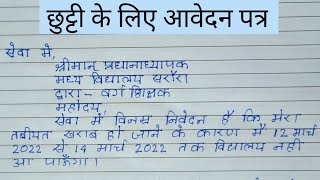 छुट्टी के लिए आवेदन पत्र
सेवा में,
श्रीमान् प्रधानाध्यापक
मध्य विद्यालय सरौरा
द्वारा - वर्ग शिक्षक
महोदय,
सेवा में विनम्र निवेदन है कि, मेरा
तबीयत खराब हो जाने के कारण मैं 12 मार्च
2022 से 14 मार्च 2022 तक विद्यालय नहीं
आ पाऊँगा।